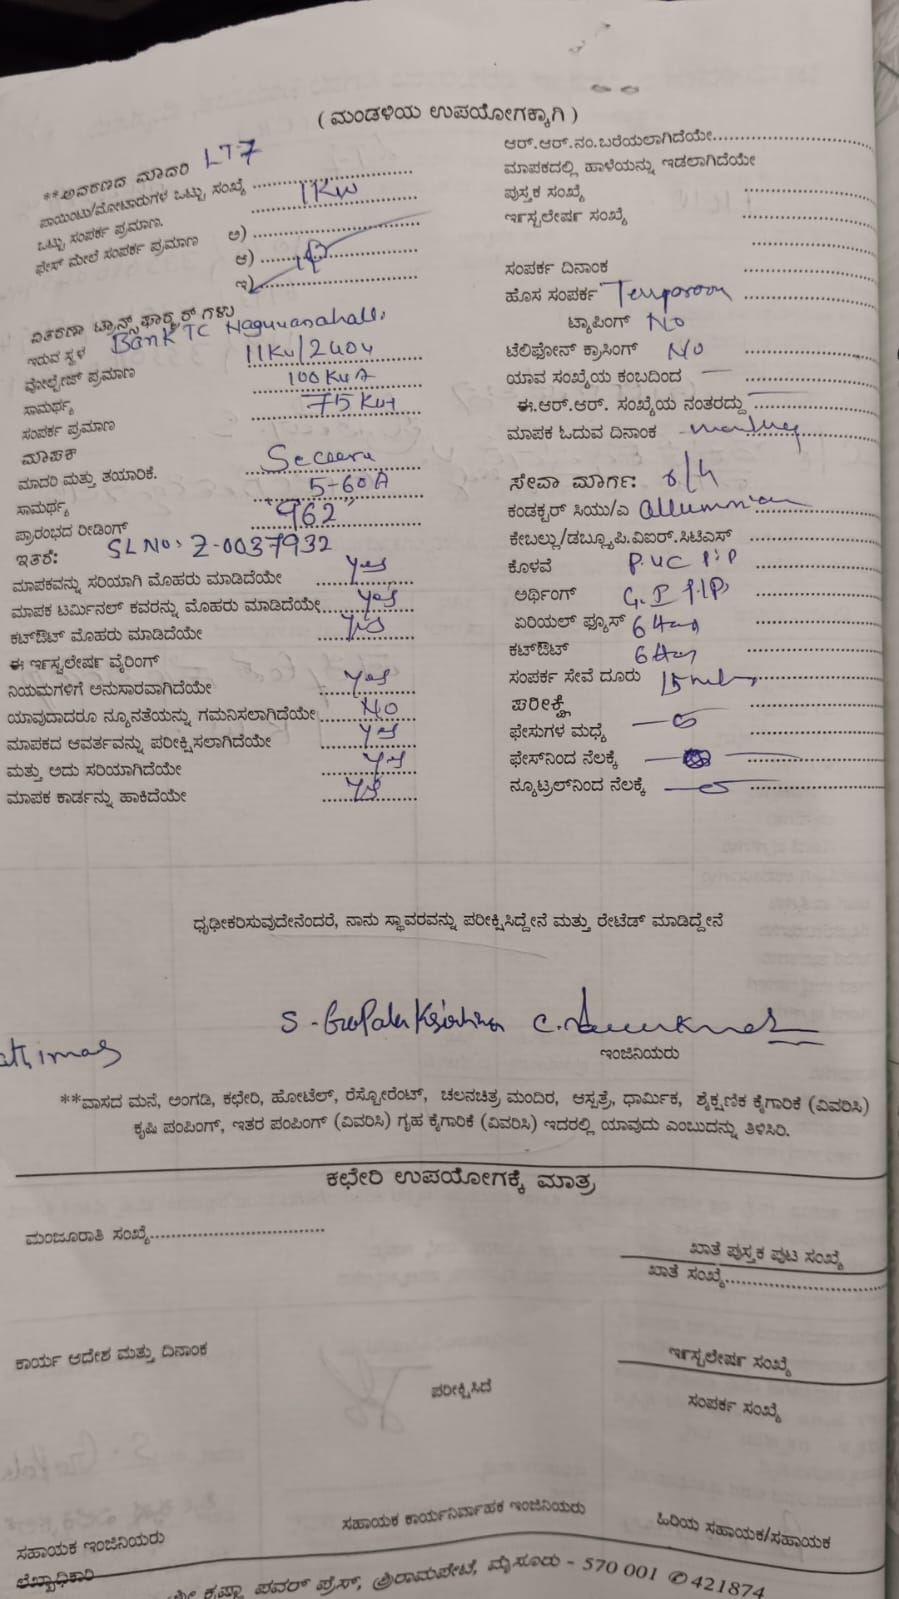 ( ಮಂಡಳಿಯ ಉಪಯೋಗಕ್ಕಾಗಿ )
**ಆವರಣದ ಮಾದರಿ LT7
ಪಾಯಿಂಟು/ಮೋಟಾರುಗಳ ಒಟ್ಟು ಸಂಖ್ಯೆ
ಒಟ್ಟು ಸಂಪರ್ಕ ಪ್ರಮಾಣ. 1 Kw
ಫೇಸ್ ಮೇಲೆ ಸಂಪರ್ಕ ಪ್ರಮಾಣ ಅ)
ಆ)
ಇ)
ವಿತರಣಾ ಟ್ರಾನ್ಸ್‌ಫಾರ್ಮರ್‌ಗಳು
ಇರುವ ಸ್ಥಳ Bank TC
ವೋಲ್ಟೇಜ್ ಪ್ರಮಾಣ 11Kv/240v
ಸಾಮರ್ಥ್ಯ 100 KvA
ಸಂಪರ್ಕ ಪ್ರಮಾಣ 75 KvA
ಮಾಪಕ
ಮಾದರಿ ಮತ್ತು ತಯಾರಿಕೆ.
ಸಾಮರ್ಥ್ಯ 5-60A
ಪ್ರಾರಂಭದ ರೀಡಿಂಗ್ "962"
ಇತರೆ: SL No: Z-0037932
ಮಾಪಕವನ್ನು ಸರಿಯಾಗಿ ಮೊಹರು ಮಾಡಿದೆಯೇ Yes
ಮಾಪಕ ಟರ್ಮಿನಲ್ ಕವರನ್ನು ಮೊಹರು ಮಾಡಿದೆಯೇ Yes
ಕಟ್‌ಔಟ್ ಮೊಹರು ಮಾಡಿದೆಯೇ Yes
ಈ ಇನ್ಸ್ಟಲೇಷನ್ ವೈರಿಂಗ್
ನಿಯಮಗಳಿಗೆ ಅನುಸಾರವಾಗಿದೆಯೇ Yes
ಯಾವುದಾದರೂ ನ್ಯೂನತೆಯನ್ನು ಗಮನಿಸಲಾಗಿದೆಯೇ NO
ಮಾಪಕದ ಆವರ್ತವನ್ನು ಪರೀಕ್ಷಿಸಲಾಗಿದೆಯೇ Yes
ಮತ್ತು ಅದು ಸರಿಯಾಗಿದೆಯೇ Yes
ಮಾಪಕ ಕಾರ್ಡನ್ನು ಹಾಕಿದೆಯೇ Yes
ಆರ್.ಆರ್.ನಂ.ಬರೆಯಲಾಗಿದೆಯೇ
ಮಾಪಕದಲ್ಲಿ ಹಾಳೆಯನ್ನು ಇಡಲಾಗಿದೆಯೇ
ಪುಸ್ತಕ ಸಂಖ್ಯೆ
ಇನ್ಸ್ಟಲೇಷನ್ ಸಂಖ್ಯೆ
ಸಂಪರ್ಕ ದಿನಾಂಕ
ಹೊಸ ಸಂಪರ್ಕ
ಟ್ಯಾಪಿಂಗ್ NO
ಟೆಲಿಫೋನ್ ಕ್ರಾಸಿಂಗ್ NO
ಯಾವ ಸಂಖ್ಯೆಯ ಕಂಬದಿಂದ —
ಈ.ಆರ್.ಆರ್. ಸಂಖ್ಯೆಯ ನಂತರದ್ದು
ಮಾಪಕ ಓದುವ ದಿನಾಂಕ
ಸೇವಾ ಮಾರ್ಗ: o/h
ಕಂಡಕ್ಟರ್ ಸಿಯು/ಎ
ಕೇಬಲ್ಲು/ಡಬ್ಲ್ಯೂಪಿ.ವಿಐರ್.ಸಿಟಿಎಸ್
ಕೊಳವೆ P.VC PiP
ಅರ್ಥಿಂಗ್ G.I PiP
ಏರಿಯಲ್ ಫ್ಯೂಸ್
ಕಟ್‌ಔಟ್
ಸಂಪರ್ಕ ಸೇವೆ ದೂರು
ಪರೀಕ್ಷೆ
ಫೇಸುಗಳ ಮಧ್ಯೆ
ಫೇಸ್‌ನಿಂದ ನೆಲಕ್ಕೆ
ನ್ಯೂಟ್ರಲ್‌ನಿಂದ ನೆಲಕ್ಕೆ
ಧೃಢೀಕರಿಸುವುದೇನೆಂದರೆ, ನಾನು ಸ್ಥಾವರವನ್ನು ಪರೀಕ್ಷಿಸಿದ್ದೇನೆ ಮತ್ತು ರೇಟೆಡ್ ಮಾಡಿದ್ದೇನೆ
ಇಂಜಿನಿಯರು
**ವಾಸದ ಮನೆ, ಅಂಗಡಿ, ಕಛೇರಿ, ಹೋಟೆಲ್, ರೆಸ್ಟೋರೆಂಟ್, ಚಲನಚಿತ್ರ ಮಂದಿರ, ಆಸ್ಪತ್ರೆ, ಧಾರ್ಮಿಕ, ಶೈಕ್ಷಣಿಕ ಕೈಗಾರಿಕೆ (ವಿವರಿಸಿ)
ಕೃಷಿ ಪಂಪಿಂಗ್, ಇತರ ಪಂಪಿಂಗ್ (ವಿವರಿಸಿ) ಗೃಹ ಕೈಗಾರಿಕೆ (ವಿವರಿಸಿ) ಇದರಲ್ಲಿ ಯಾವುದು ಎಂಬುದನ್ನು ತಿಳಿಸಿರಿ.
ಕಛೇರಿ ಉಪಯೋಗಕ್ಕೆ ಮಾತ್ರ
ಮಂಜೂರಾತಿ ಸಂಖ್ಯೆ
ಖಾತೆ ಪುಸ್ತಕ ಪುಟ ಸಂಖ್ಯೆ
ಖಾತೆ ಸಂಖ್ಯೆ
ಕಾರ್ಯ ಆದೇಶ ಮತ್ತು ದಿನಾಂಕ
ಇನ್ಸ್ಟಲೇಷನ್ ಸಂಖ್ಯೆ
ಪರೀಕ್ಷಿಸಿದೆ
ಸಂಪರ್ಕ ಸಂಖ್ಯೆ
ಸಹಾಯಕ ಇಂಜಿನಿಯರು
ಸಹಾಯಕ ಕಾರ್ಯನಿರ್ವಾಹಕ ಇಂಜಿನಿಯರು
ಹಿರಿಯ ಸಹಾಯಕ/ಸಹಾಯಕ
ಲೆಖ್ಖಾಧಿಕಾರಿ
ಕೃಷ್ಣಾ ಪವರ್ ಪ್ರೆಸ್, ಶ್ರೀರಾಮಪೇಟೆ, ಮೈಸೂರು - 570 001 ✆ 421874